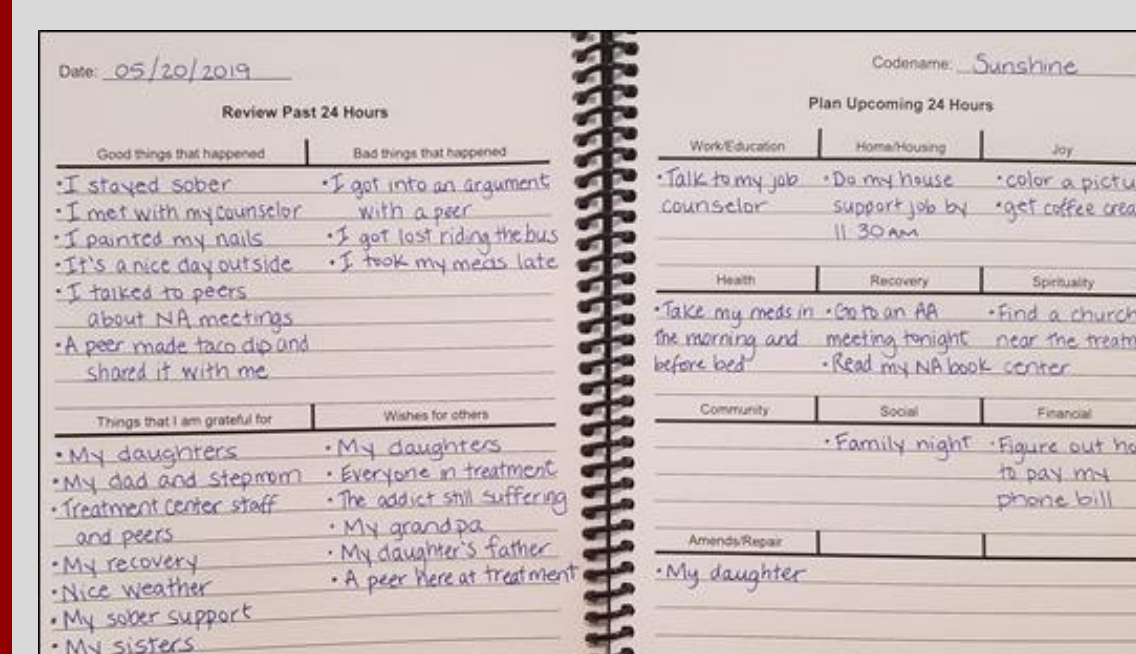 Date: 05/20/2019
Review Past 24 Hours
Good things that happened
• I stayed sober
• I met with my counselor
• I painted my nails
• It's a nice day outside
• I talked to peers
about NA meetings
• A peer made taco dip and
shared it with me
Bad things that happened
• I got into an argument
with a peer
• I got lost riding the bus
• I took my meds late
Things that I am grateful for
• My daughters
• My dad and stepmom
• Treatment center staff
and peers
• My recovery
• Nice weather
• My sober support
• My sisters
Wishes for others
• My daughters
• Everyone in treatment
• The addict still suffering
• My grandpa
• My daughter's father
• A peer here at treatment
Codename: Sunshine
Plan Upcoming 24 Hours
Work/Education
• Talk to my job
counselor
Home/Housing
• Do my house
support job by
11:30 AM
Joy
• color a
• get coffee
Health
• Take my meds in
the morning and
before bed
Recovery
• Go to an AA
meeting tonight
• Read my NA book
Spirituality
• Find a church
near the
center
Community
Social
• Family night
Financial
• Figure out
to pay my
phone bill
Amends/Repair
• My daughter